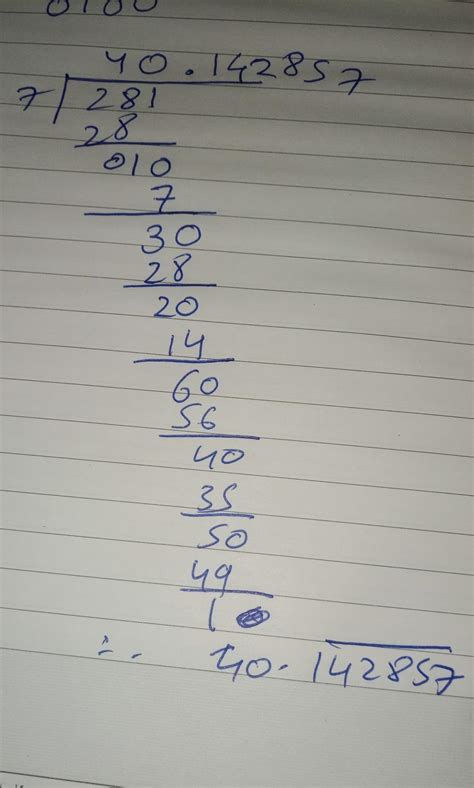 0100
40.142857
7 281
28
010
7
30
28
20
14
60
56
40
35
50
49
1
∴ 40.142857